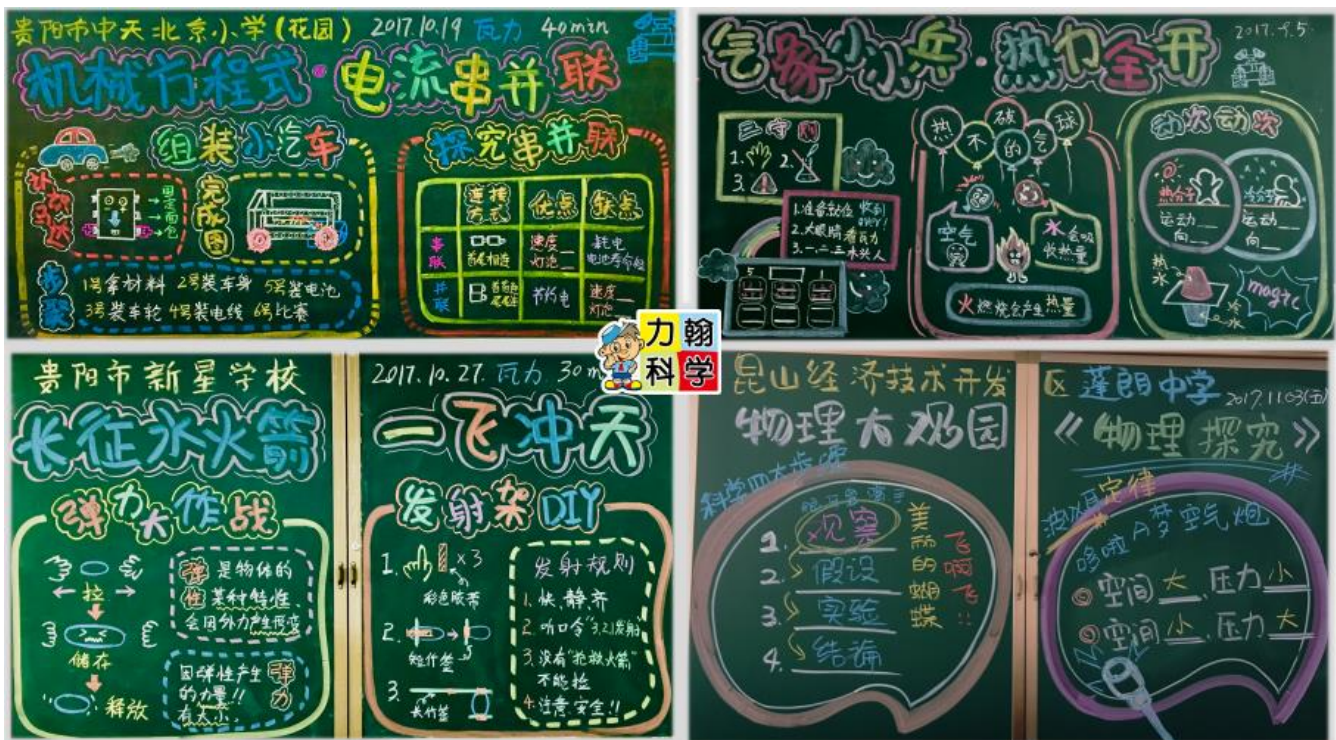 贵阳市中天北京小学(花园) 2017.10.19 瓦力 40min
机械方程式·电流串并联
组装小汽车
完成图
步骤
1号拿材料 2号装车身 5号装电池
3号装车轮 4号装电线 6号比赛
探究串并联
连接方式 优点 缺点
串联 首尾相连 速度__ 灯泡__ 耗电
并联 节约电 速度__ 灯泡__
气象小小兵·热力全开
三守则
1.
2.
3.
1.准备动位 收到
2.大眼睛看瓦力
3.一、二、三木头人
5 1
热不破的气球
空气
水会吸收热量
火燃烧会产生热量
动次动次
热分子 运动__ 向__
冷分子 运动__ 向__
热水
冷水
magic
力翰科学
贵阳市新星学校 2017.10.27. 瓦力
长征水火箭 一飞冲天
弹力大作战
拉
储存
释放
弹性 是物体的
某种特性、
会因外力产生形变
因弹性产生
的力量!! 弹力
有大小.
发射架DIY
1. ×3
彩色胶带
2.
短竹签
3.
长竹签
发射规则
1. 快、静、齐
2. 听口令"3,2,1发射"
3. 没有"抢救火箭"
不能捡
4. 注意安全!!
昆山经济技术开发区 蓬朗中学 2017.11.03(五)
物理大观园 《物理探究》
科学四大步骤
1. 观察
2. 假设
3. 实验
4. 结论
美丽的蝴蝶
飞啊飞!!
定律
哆啦A梦空气炮
空间 大、压力 小
空间 小、压力 大